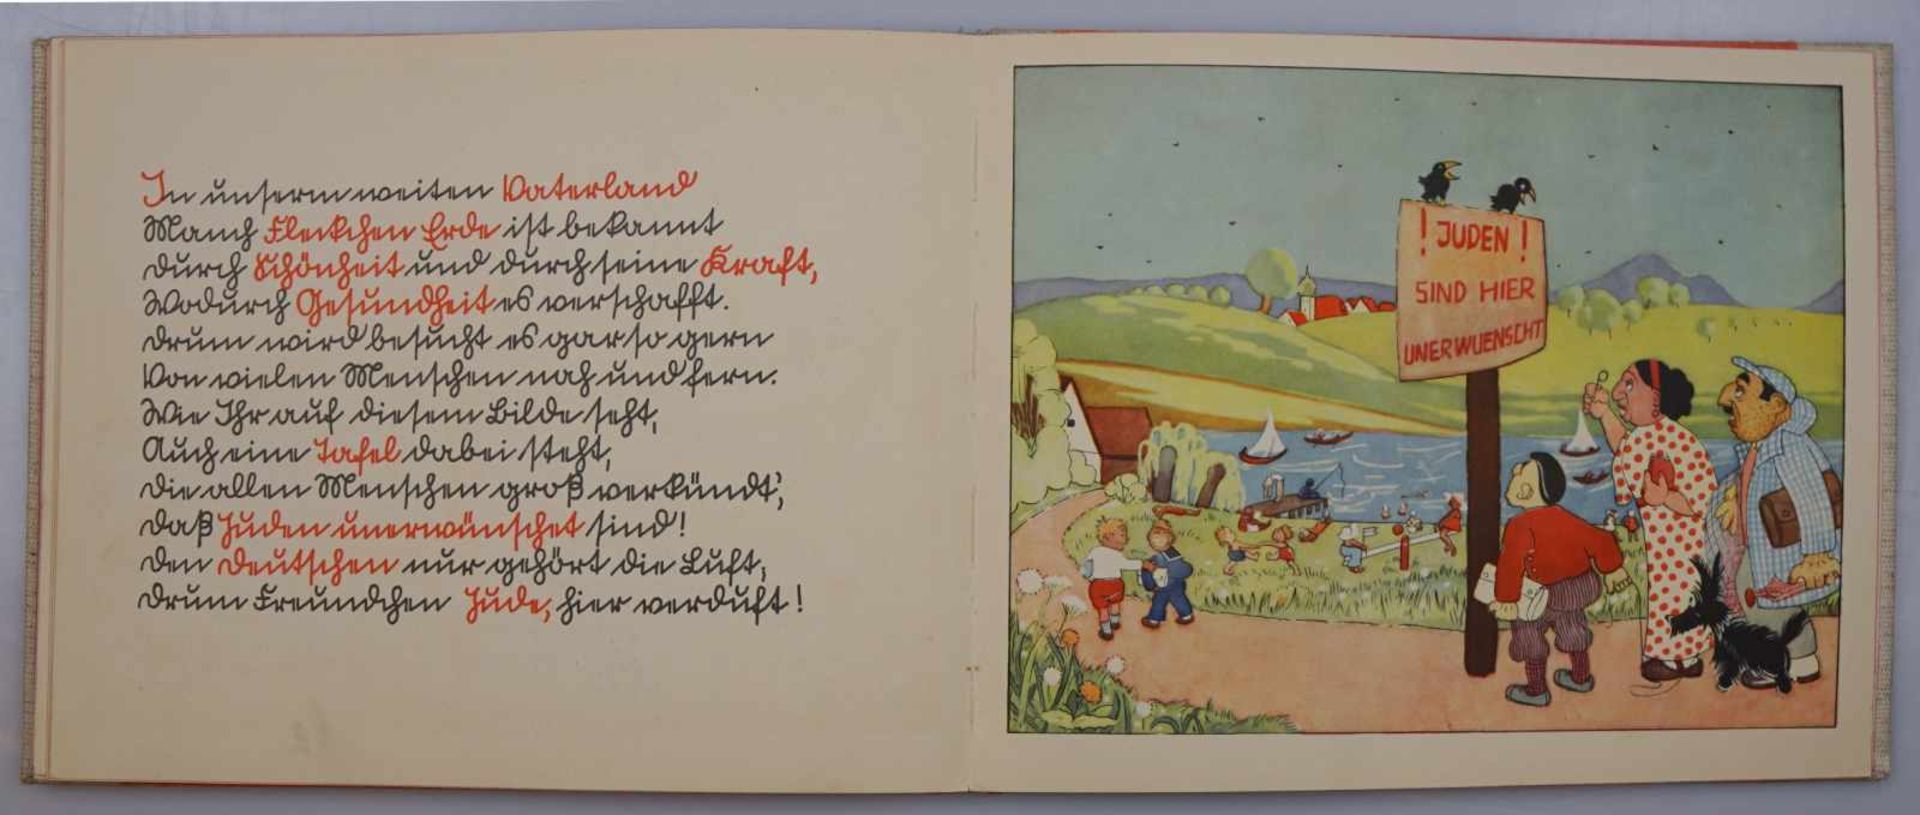 In unserm weiten Vaterland
Manch Fleckchen Erde ist bekannt
Durch Schönheit und durch seine Kraft,
Wodurch Gesundheit es verschafft.
Drum wird besucht es gar so gern
Von vielen Menschen nah und fern.
Wie Ihr auf diesem Bilde seht,
Auch eine Tafel dabei steht,
Die allen Menschen groß verkünd't,
Daß Juden unerwünschet sind!
Den Deutschen nur gehört die Luft,
Drum Freundchen Jude, hier verduft!
! JUDEN !
SIND HIER
UNERWUENSCHT